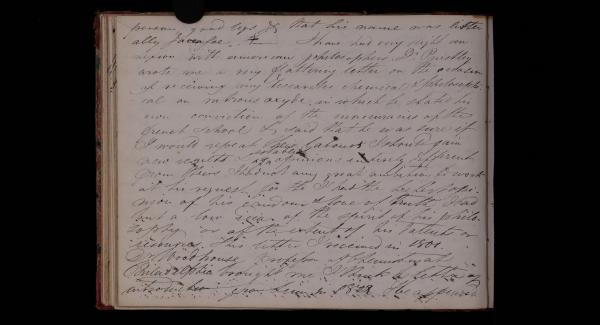 person, good legs & that his name was litter
ally
I have had very slight con
nexion with American philosophers. Dr Priestley
wrote me a very flattering letter on the occasion
of receiving my Researches chemical & philosophi
cal on nitrous oxyde, in which he stated his
own conviction of the inaccuracies of the
French School & said that he was sure if
I would repeat these labours I should gain
new results & opinions entirely different
from theirs. I had not any great ambition to work
at his request for tho I had the highest opi
nion of his candour & love of truth I had
but a low idea of the spirit of his philo
sophy or of the extent of his talents or
resources. This letter I received in 1801.
Dr Woodhouse Professor of Chemistry at
Philadelphia brought me I think a letter of
introduction from him in 1802 He appeared